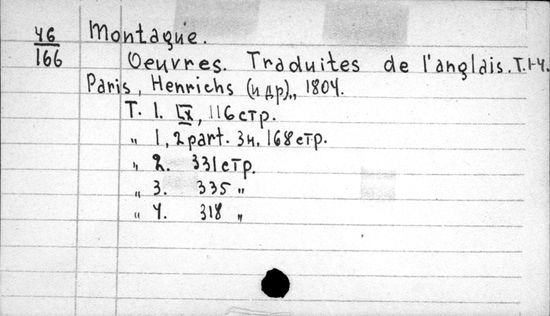 46
166
Montague.
Oeuvres. Traduites de l'anglais. T.1-4.
Paris, Henrichs (и др)., 1804.
T. 1. IX, 116 стр.
„ 1, 2 part. 3н. 168 стр.
„ 2. 331 стр.
„ 3. 335 „
„ 4. 318 „